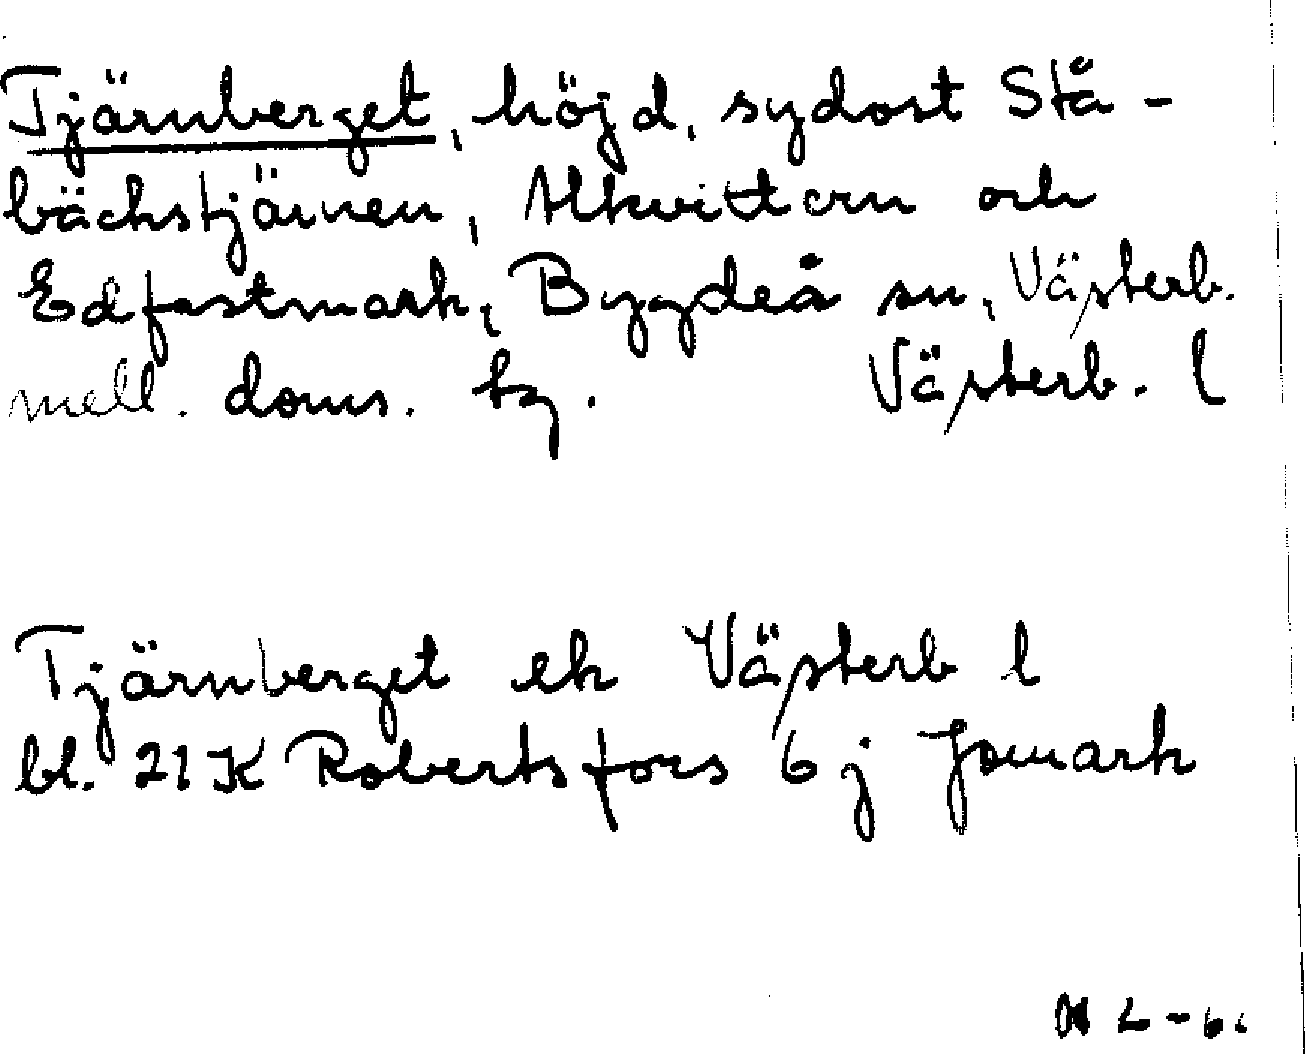 Tjärnberget, höjd, sydost Stå-
bäckstjärnen, Altkvittern och
Edfastmark, Bygdeå sn, Västerb.
mell. doms. tg. Västerb. l
Tjärnberget ek Västerb l
bl. 21K Robertsfors 6j Jomark